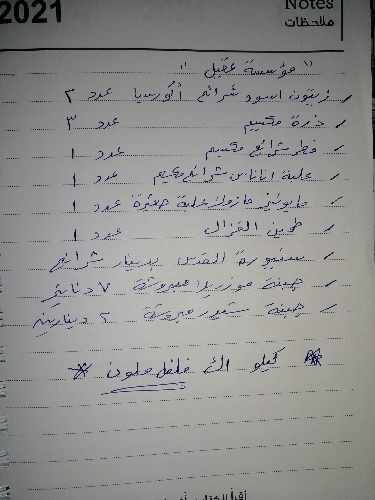 2021
Notes
ملاحظات
" مؤسسة عقيل "
/ زيتون اسود شرائح أكوسيا عدد ٢
/ ذرة مكسيم عدد ٣
/ فطر شرائح مكسيم عدد ١
/ علبة اناناس شرائح مكسيم عدد ١
/ مايونيز مازولا علبة صغيرة عدد ١
/ طحين الغزال عدد ١
/ سنيورة القدس بدينار شرائح
/ جبنة موزريلا مبروشة ٧ دنانير
/ جبنة شيدر مبروشة ٢ دينارين
* كيلو فلفل ملون *